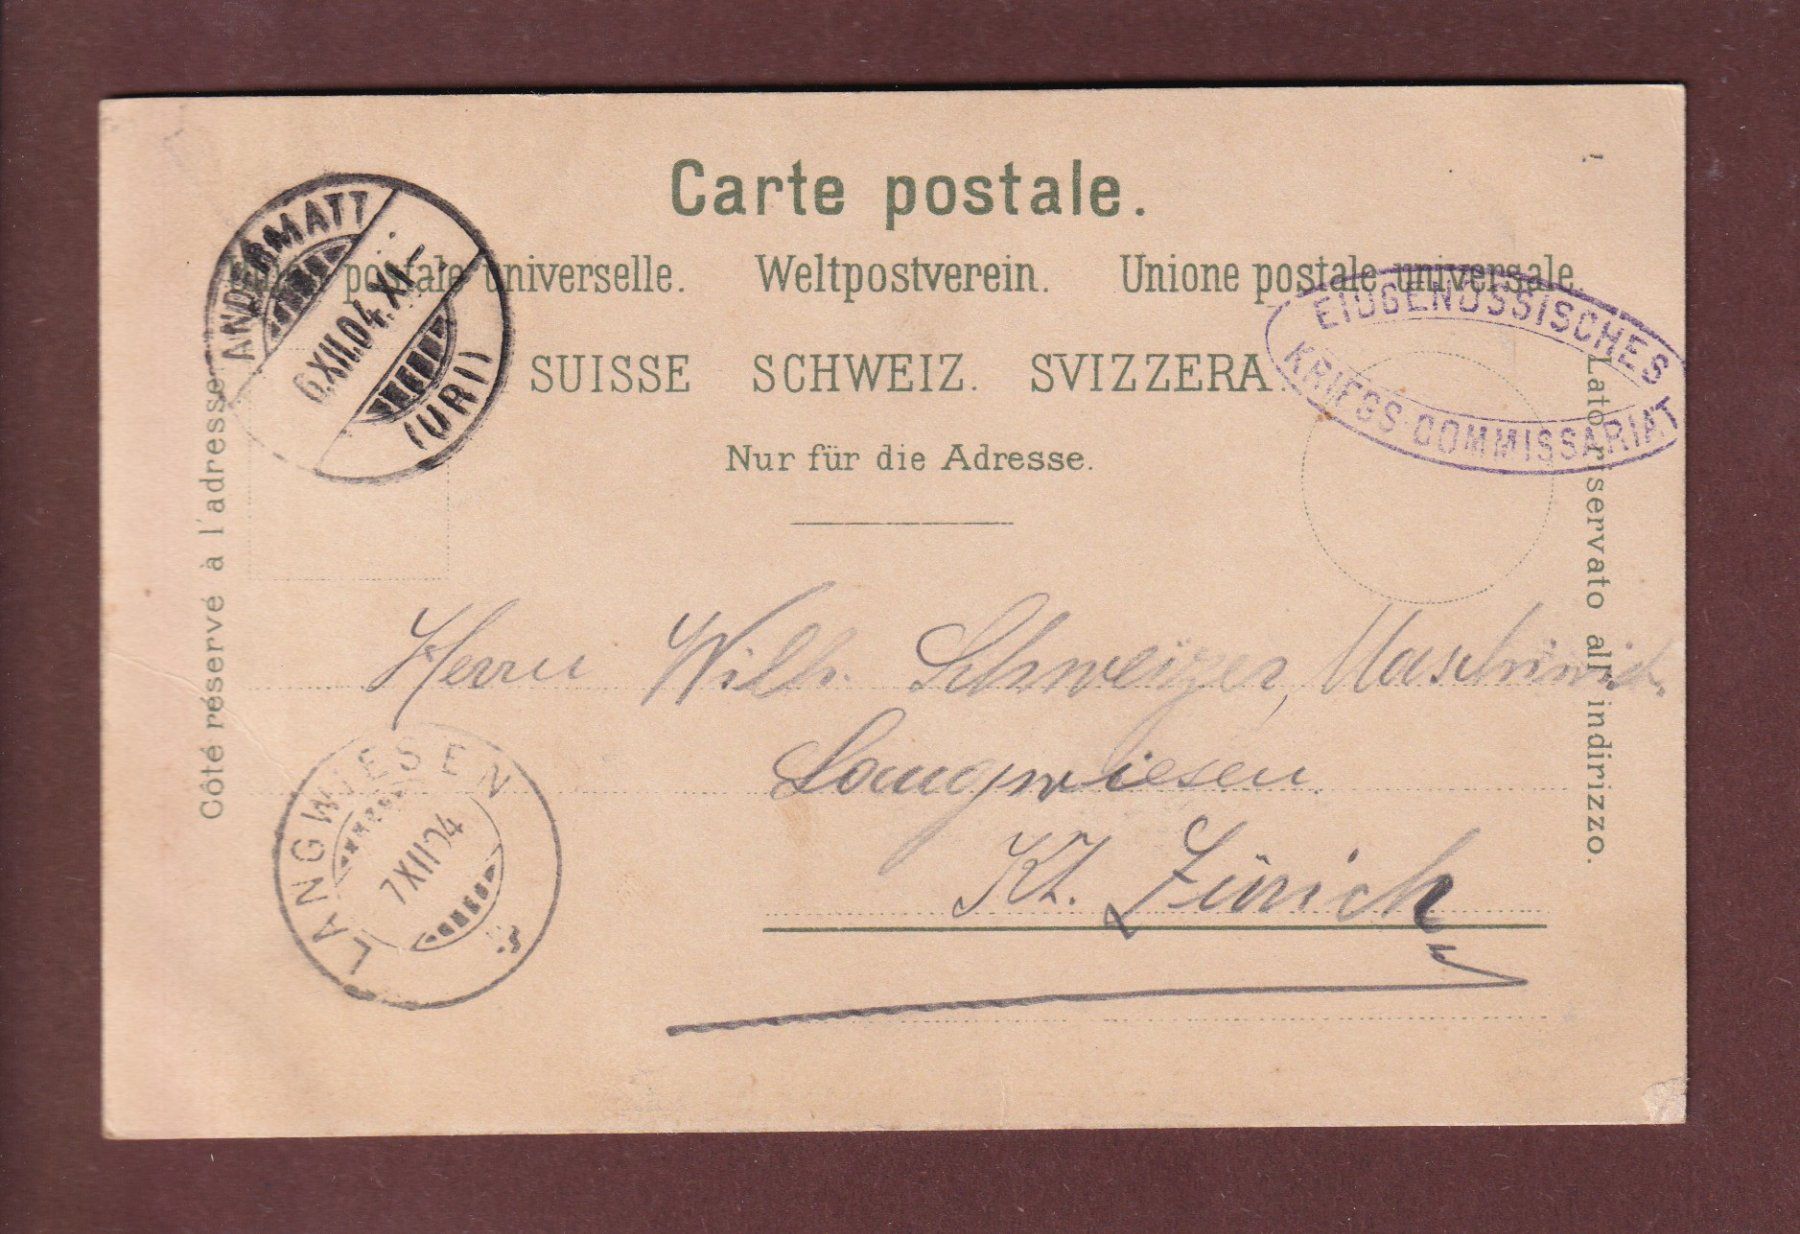 Carte postale.
postale universelle. Weltpostverein. Unione postale universale.
SUISSE SCHWEIZ. SVIZZERA.
Nur für die Adresse.
ANDERMATT
6.XII.04.XI-
(URI)
EIDGENÖSSISCHES
KRIEGS-COMMISSARIAT
Côté réservé à l'adresse
Lato riservato all' indirizzo.
Herrn Wilh. Schweizer,
Langwiesen
Kt. Zürich
LANGWIESEN
7 XII 04